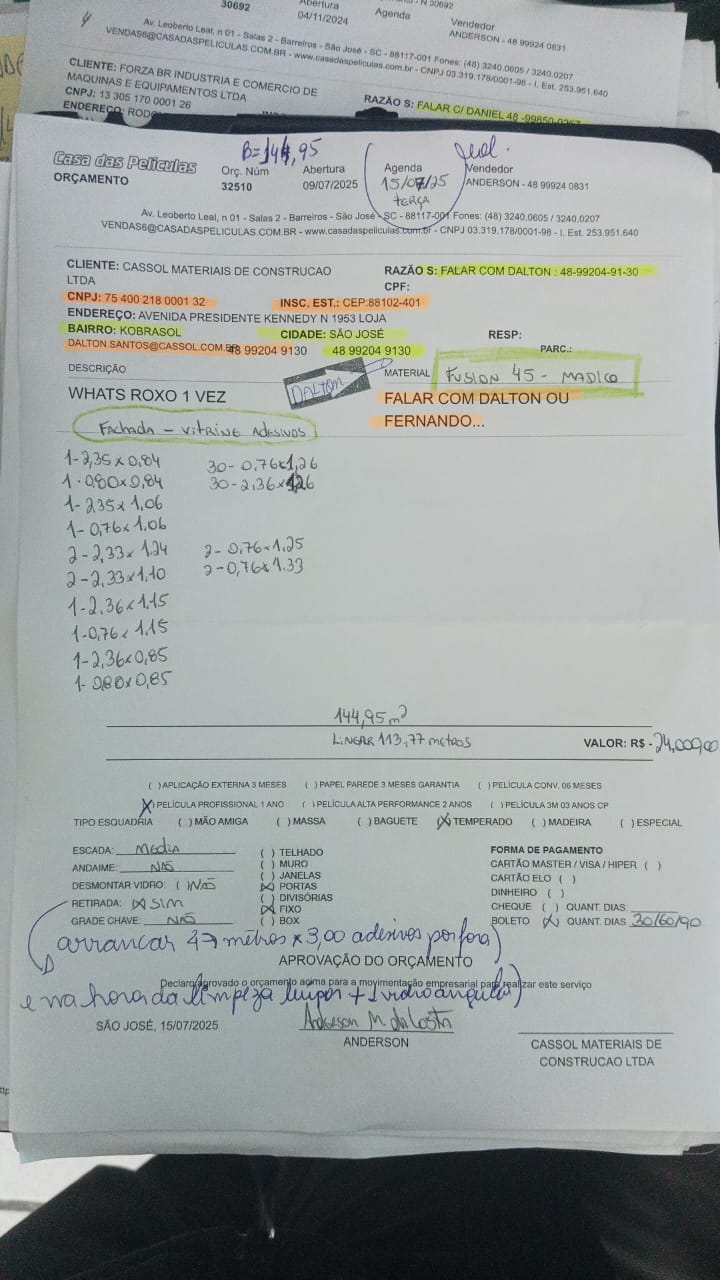 30692
Abertura
04/11/2024
Agenda
Vendedor
ANDERSON - 48 99924 0831
Av. Leoberto Leal, n 01 - Salas 2 - Barreiros - São José - SC - 88117-001 Fones: (48) 3240.0605 / 3240.0207
VENDAS6@CASADASPELICULAS.COM.BR - www.casadaspeliculas.com.br - CNPJ 03.319.178/0001-98 - I. Est. 253.951.640
CLIENTE: FORZA BR INDUSTRIA E COMERCIO DE
MAQUINAS E EQUIPAMENTOS LTDA
CNPJ: 13 305 170 0001 26
RAZÃO S: FALAR C/ DANIEL 48
B=144,95
Casa das Películas
ORÇAMENTO
Orç. Núm
32510
Abertura
09/07/2025
Agenda
15/07/25
TERÇA
Vendedor
ANDERSON - 48 99924 0831
Av. Leoberto Leal, n 01 - Salas 2 - Barreiros - São José - SC - 88117-001 Fones: (48) 3240.0605 / 3240.0207
VENDAS6@CASADASPELICULAS.COM.BR - www.casadaspeliculas.com.br - CNPJ 03.319.178/0001-98 - I. Est. 253.951.640
CLIENTE: CASSOL MATERIAIS DE CONSTRUCAO LTDA
RAZÃO S: FALAR COM DALTON : 48-99204-91-30
CPF:
CNPJ: 75 400 218 0001 32
INSC. EST.: CEP:88102-401
ENDEREÇO: AVENIDA PRESIDENTE KENNEDY N 1953 LOJA
BAIRRO: KOBRASOL
CIDADE: SÃO JOSÉ
RESP:
DALTON.SANTOS@CASSOL.COM.BR
48 99204 9130
48 99204 9130
PARC.:
DESCRIÇÃO
DALTON
MATERIAL
FUSION 45 - MADICO
WHATS ROXO 1 VEZ
FALAR COM DALTON OU
FERNANDO...
Fachada - vitrine Adesivos
1-2,35x0,84 30-0,76x1,26
1-0,80x0,84 30-2,36x1,26
1-2,35x1,06
1-0,76x1,06
2-2,33x1,24 2-0,76x1,25
2-2,33x1,10 2-0,76x1,33
1-2,36x1,15
1-0,76x1,15
1-2,36x0,85
1-0,80x0,85
144,95m²
Linear 113,77 metros
VALOR: R$ -24,000,00
( ) APLICAÇÃO EXTERNA 3 MESES ( ) PAPEL PAREDE 3 MESES GARANTIA ( ) PELÍCULA CONV. 06 MESES
(X) PELÍCULA PROFISSIONAL 1 ANO ( ) PELÍCULA ALTA PERFORMANCE 2 ANOS ( ) PELÍCULA 3M 03 ANOS CP
TIPO ESQUADRIA ( ) MÃO AMIGA ( ) MASSA ( ) BAGUETE (X) TEMPERADO ( ) MADEIRA ( ) ESPECIAL
ESCADA: Media
ANDAIME: NÃO
DESMONTAR VIDRO: ( ) NÃO
RETIRADA: (X) SIM
GRADE CHAVE: NÃO
( ) TELHADO
( ) MURO
( ) JANELAS
(X) PORTAS
( ) DIVISÓRIAS
(X) FIXO
( ) BOX
FORMA DE PAGAMENTO
CARTÃO MASTER / VISA / HIPER ( )
CARTÃO ELO ( )
DINHEIRO ( )
CHEQUE ( ) QUANT. DIAS:
BOLETO (X) QUANT. DIAS 30/60/90
arrancar 47 metros x 3,00 adesivos por fora)
APROVAÇÃO DO ORÇAMENTO
Declaro aprovado o orçamento acima para a movimentação empresarial para realizar este serviço
e na hora da limpeza limpar + 1 vidro angular)
SÃO JOSÉ, 15/07/2025
Anderson M. da Costa
ANDERSON
CASSOL MATERIAIS DE
CONSTRUCAO LTDA